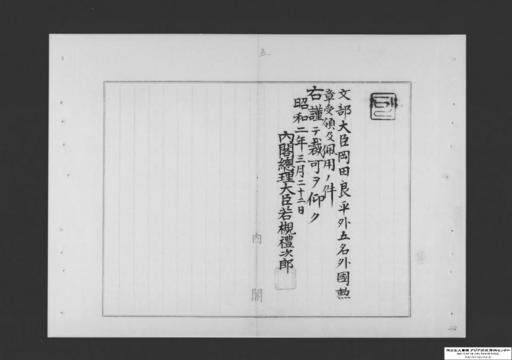 文部大臣岡田良平外五名外國勲
章受領及佩用ノ件
右謹テ裁可ヲ仰ク
昭和二年三月二十二日
内閣總理大臣若槻禮次郎
内閣